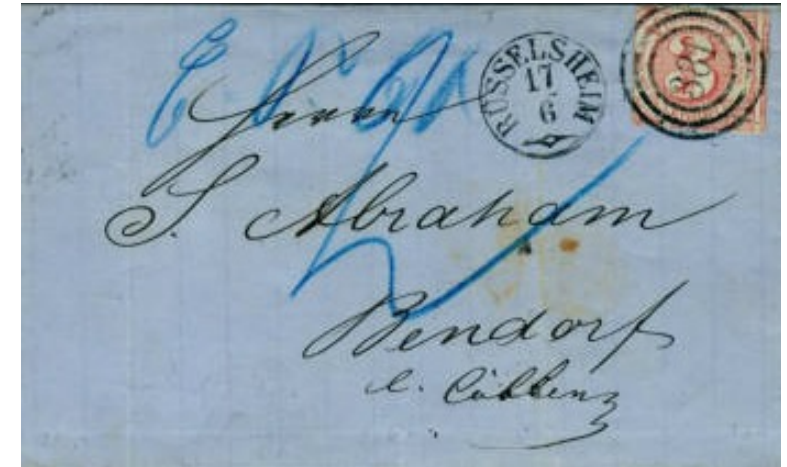 RÜSSELSHEIM
17
6
331
Herrn
S. Abraham
Bendorf
Coblenz